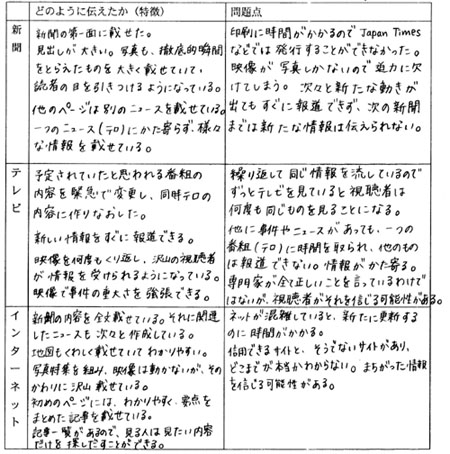 どのように伝えたか（特徴）
問題点
新聞
新聞の第一面に載せた。
見出しが大きい。写真も、徹底的瞬間
をとらえたものを大きく載せていて、
読者の目を引きつけるようになっている。
他のページは別のニュースを載せている。
一つのニュース（テロ）にかた寄らず、様々
な情報を載せている。
印刷に時間がかかるので Japan Times
などでは発行することができなかった。
映像が写真しかないので迫力に欠
けてしまう。次々と新たな動きが
出てもすぐに報道できず、次の新聞
までは新たな情報は伝えられない。
テレビ
予定されていたと思われる番組の
内容を緊急で変更し、同時テロの
内容に作りなおした。
新しい情報をすぐに報道できる。
映像を何度もくり返し、沢山の視聴者
が情報を受けられるようになっている。
映像で事件の重大さを強張できる。
繰り返して同じ情報を流しているので
ずっとテレビを見ていると視聴者は
何度も同じものを見ることになる。
他に事件やニュースがあっても、一つの
番組（テロ）に時間を取られ、他のもの
は報道できない。情報がかた寄る。
専門家が全て正しいことを言っているわけで
はないが、視聴者がそれを信じる可能性がある。
インターネット
新聞の内容を全文載せている。それに関連
したニュースも次々と作成している。
地図もくわしく載せていてわかりやすい。
写真特集を組み、映像は動かないが、その
かわりに沢山載せている。
初めのページには、わかりやすく、要点を
まとめた記事を載せている。
記事一覧があるので、見る人は見たい内容
だけを探しだすことができる。
ネットが混雑していると、新たに更新する
のに時間がかかる。
信用できるサイトと、そうでないサイトがあり、
どこまでが本当かわからない。まちがった情報
を信じる可能性がある。